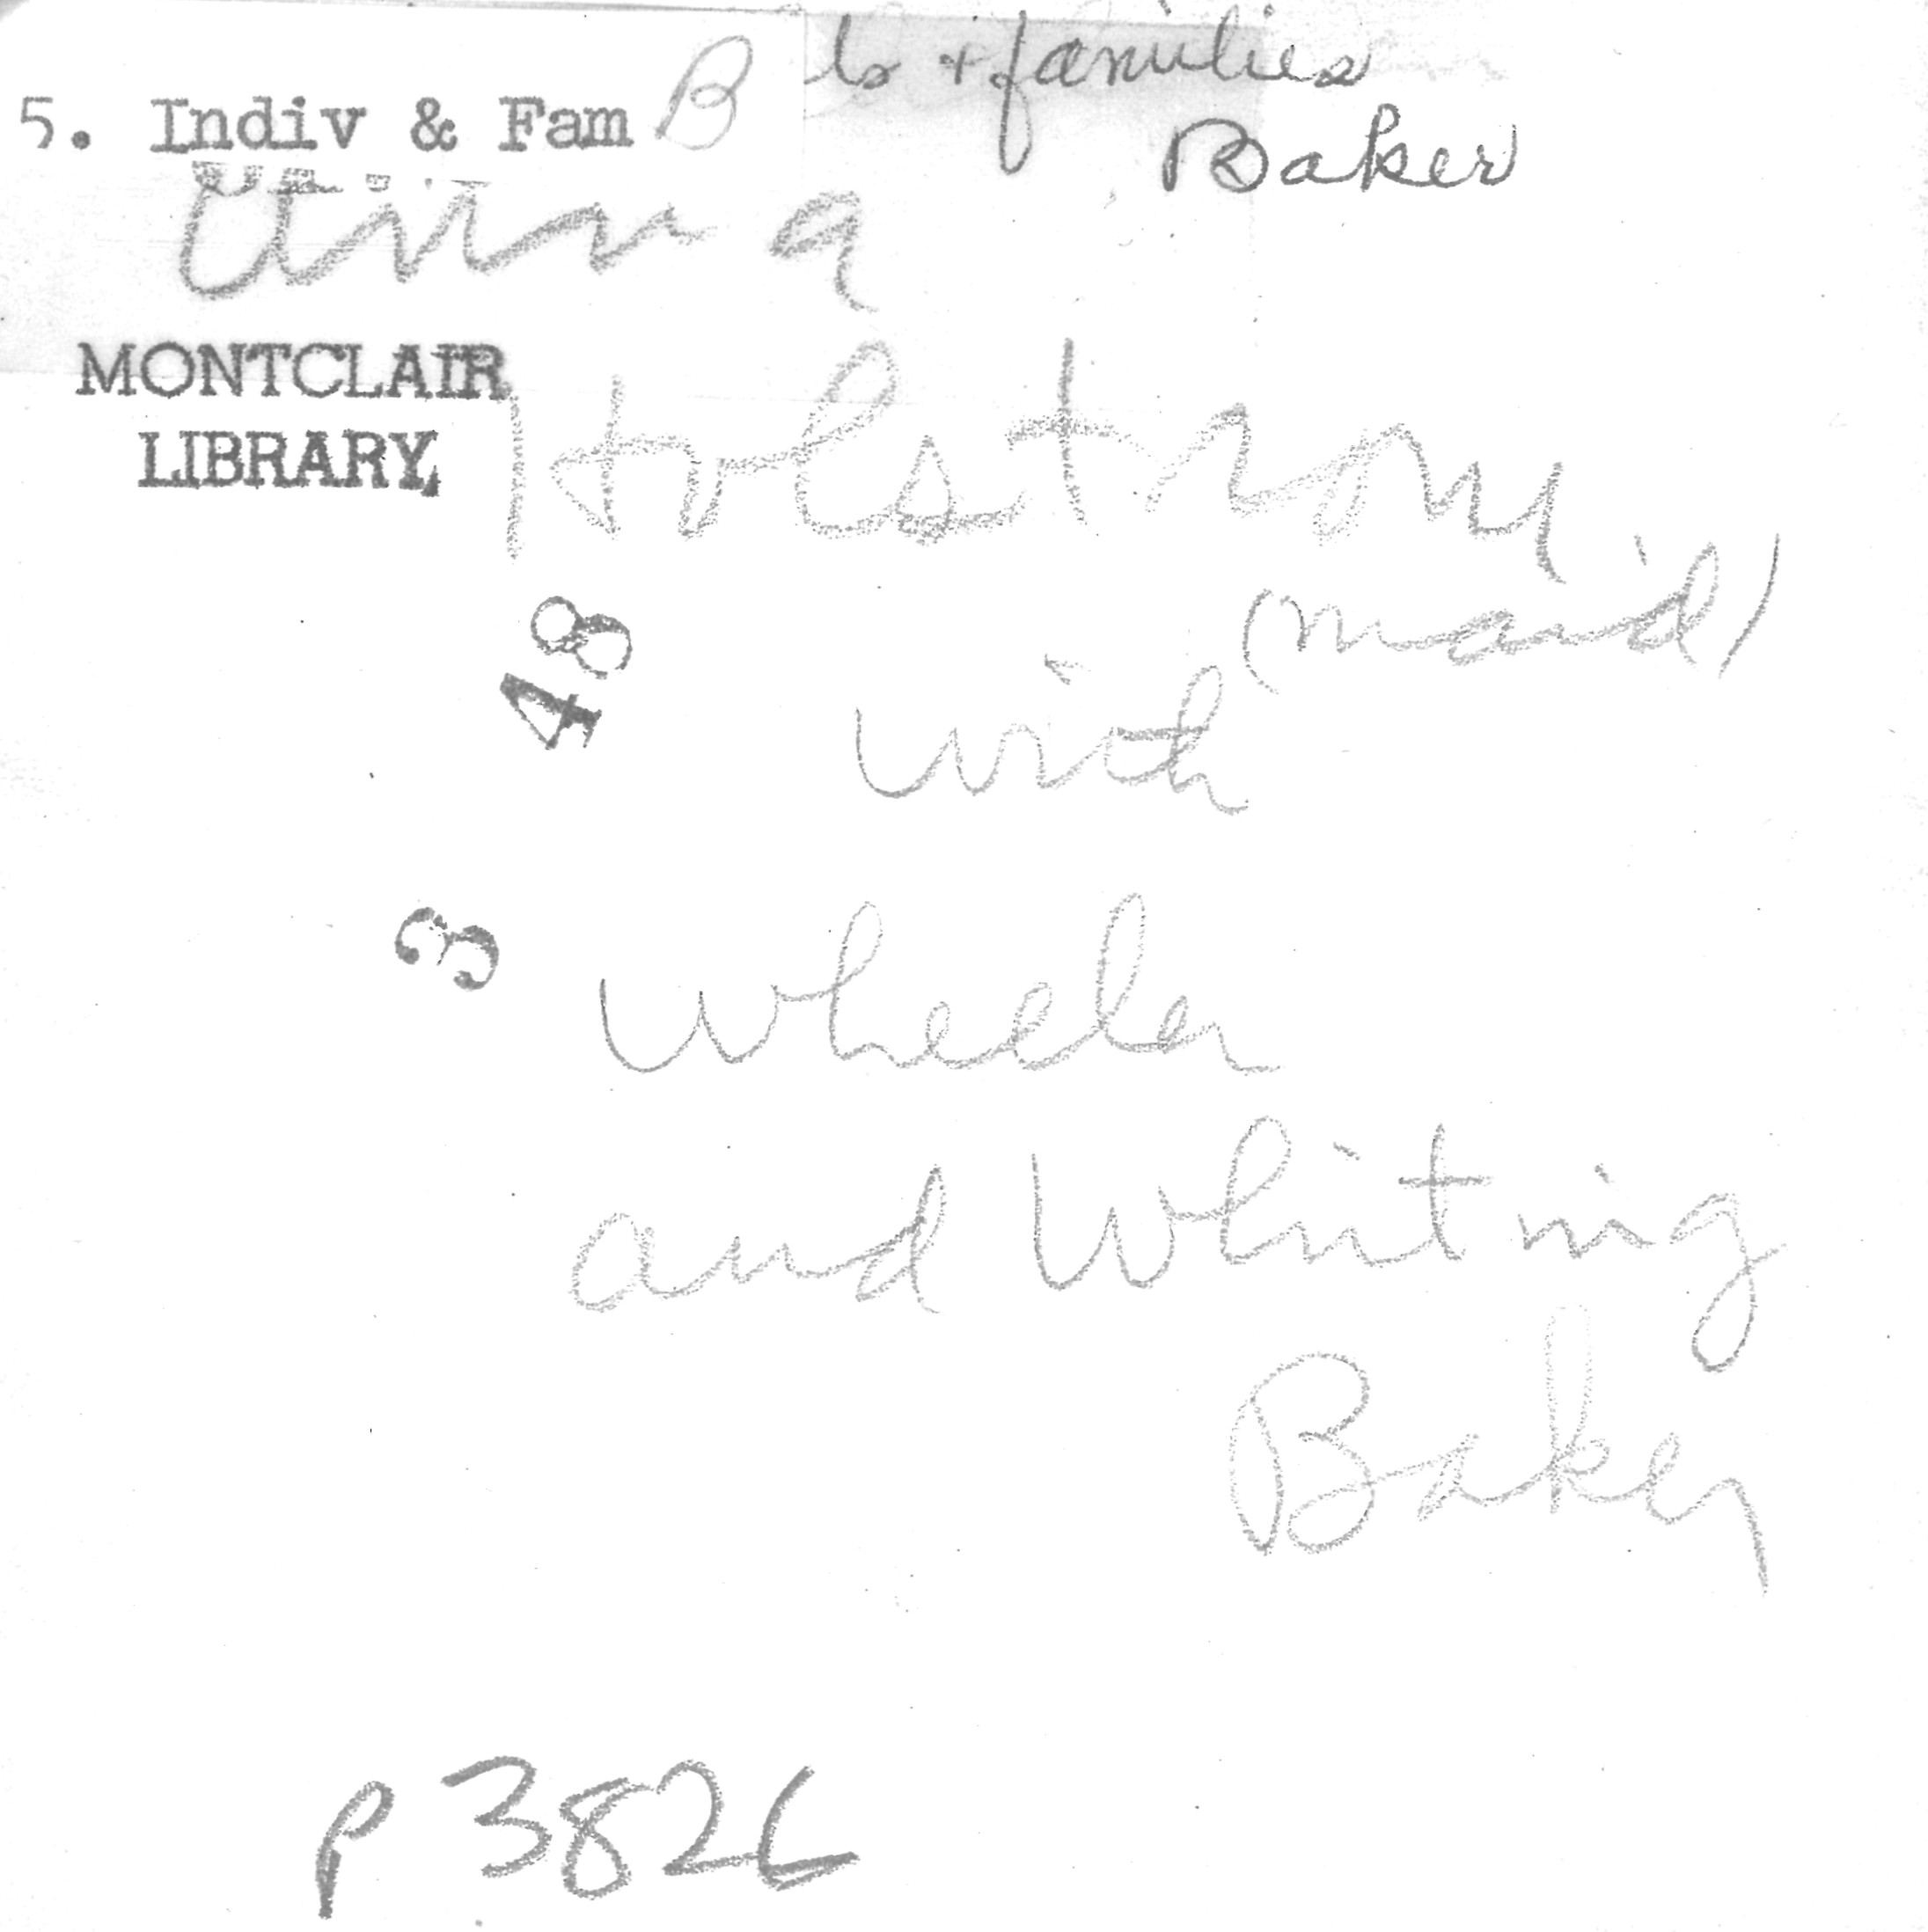 ls + families
5. Indiv & Fam B
Baker
Anna
MONTCLAIR
LIBRARY
Holstrom
(maid)
48
with
3
Wheeler
and Whiting
Baker
P 3826